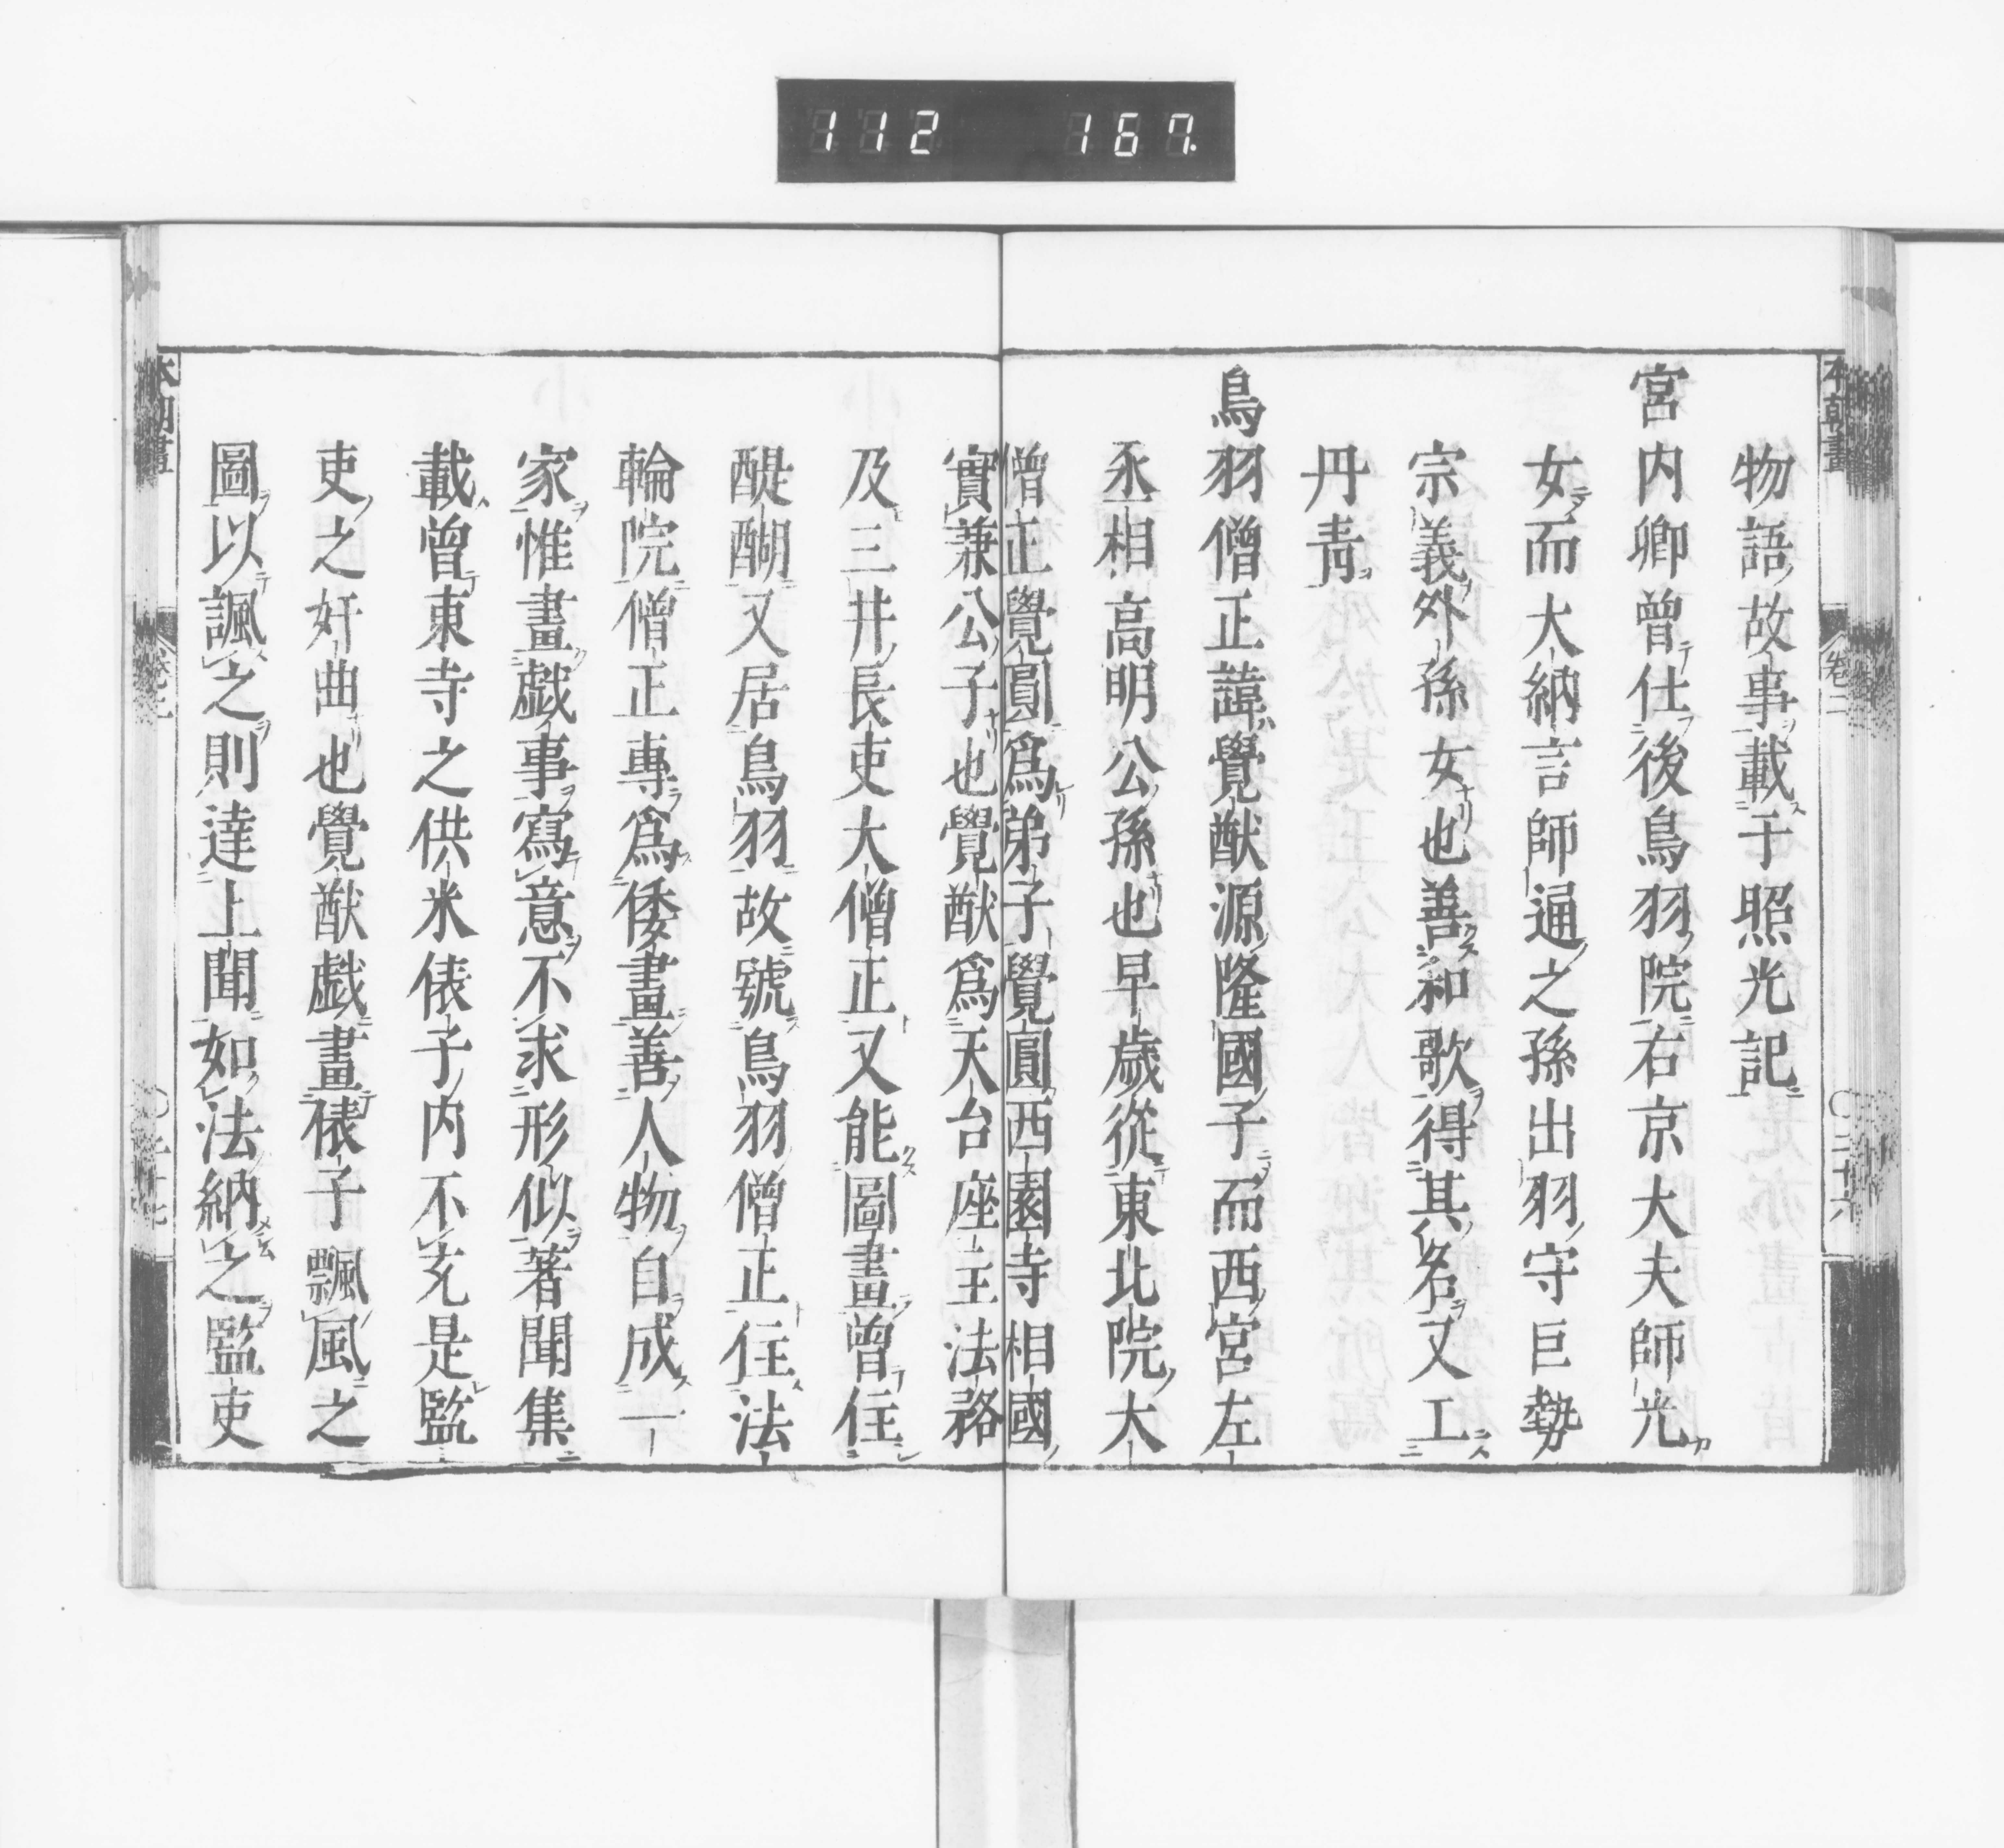 112 167.
本朝畫
卷二
〇二十六
物語故事載于照光記
宮内卿曾仕後鳥羽院右京大夫師光
女而大納言師通之孫出羽守巨勢
宗義外孫女也善和歌得其名又工
丹青
鳥羽僧正諱覺猷源隆國子而西宮左
丞相高明公孫也早歳從東北院大
僧正覺圓爲弟子覺圓西園寺相國
實兼公子也覺猷爲天台座主法務
及三井長吏大僧正又能圖畫曾住
醍醐又居鳥羽故號鳥羽僧正住法
輪院僧正專爲倭畫善人物自成一
家惟畫戯事寫意不求形似著聞集
載曾東寺之供米俵子内不充是監
吏之奸曲也覺猷戯畫俵子飄風之
圖以諷之則達上聞如法納之監吏
本朝畫